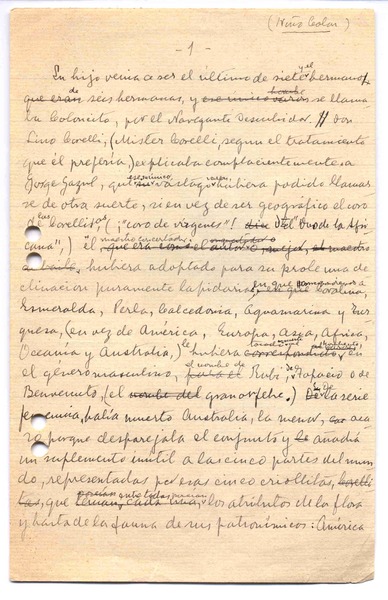 (Niño Colon)
- 1 -
Su hijo venia a ser el último de siete y el hermano
que eran de seis hermanas, y ese unico varon hombre se llama
ba Coloncito, por el Navegante Descubridor. Don
Lino Corelli, (Mister Corelli, segun el tratamiento
que él prefería) explicaba complacientemente a
Jorge Gazul, que hubiera podido llamar
se de otra suerte, si en vez de ser geográfico el coro
de las Corellis (¡"coro de vírgenes"! del "Duo de la Afri
cana",) él, maestro concertador, el maestro
hubiera adoptado para su prole una de
clinacion puramente lapidaria, en que Coralina,
Esmeralda, Perla, Calcedonia, Aguamarina y Tur
quesa, (en vez de América, Europa, Asia, Africa,
Oceanía y Australia,) le hubiera correspondido en
el género masculino, el nombre de Rubí, de Topacio o de
Benvenuto, (el gran orfebre.) De la serie
femenina, había muerto Australia, la menor, aca
so porque desparejaba el conjunto y añadía
un suplemento inutil a las cinco partes del mun
do, representadas por esas cinco criollitas,
que tenian, cada una, los atributos de la flora
y hasta de la fauna de sus patronímicos: América